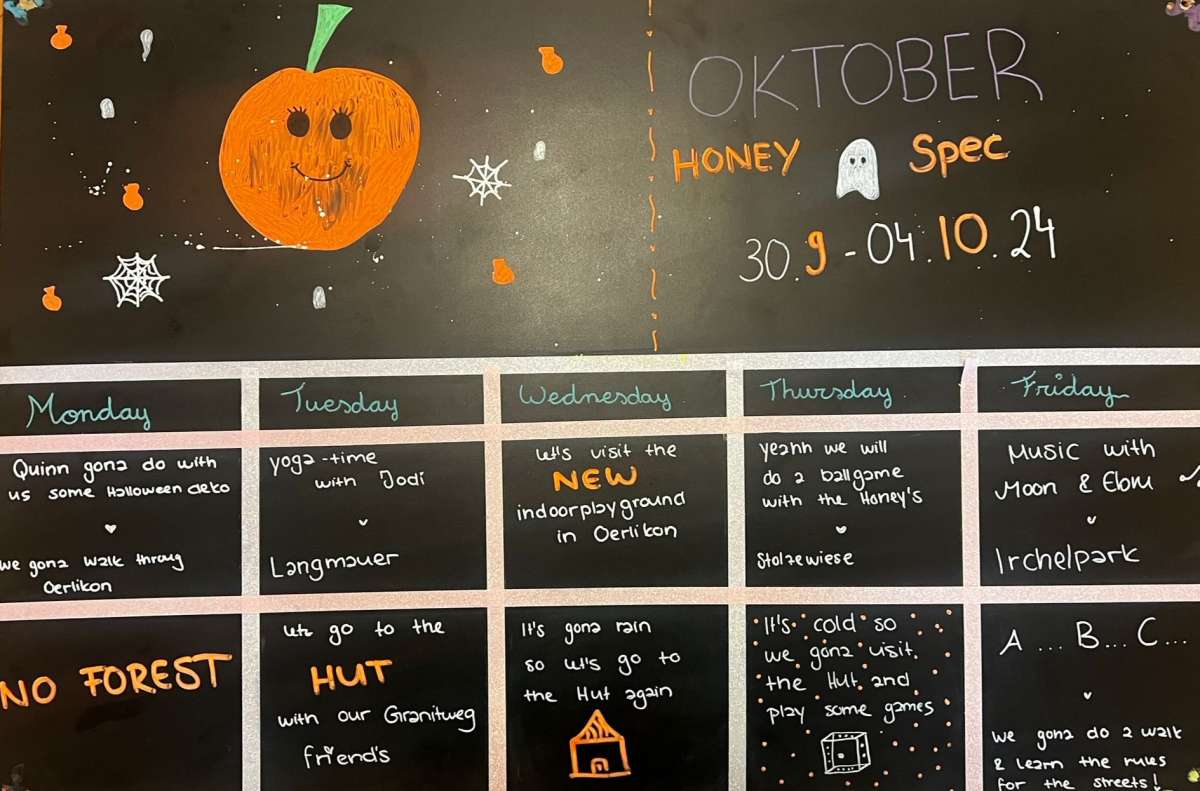 OKTOBER
HONEY Spec
30.9-04.10.24
Monday
Tuesday
Wednesday
Thursday
Friday
Quinn gona do with
us some Halloween deko
we gona walk throug
Oerlikon
yoga-time
with Jodi
Langmauer
let's visit the
NEW
indoorplayground
in Oerlikon
yeahh we will
do a ballgame
with the Honey's
Stolzewiese
Music with
Moon & Ebru
Irchelpark
NO FOREST
lets go to the
HUT
with our Granitweg
friend's
It's gona rain
so let's go to
the Hut again
It's cold so
we gona visit
the Hut and
play some games
A ... B... C...
we gona do a walk
& learn the rules
for the streets!